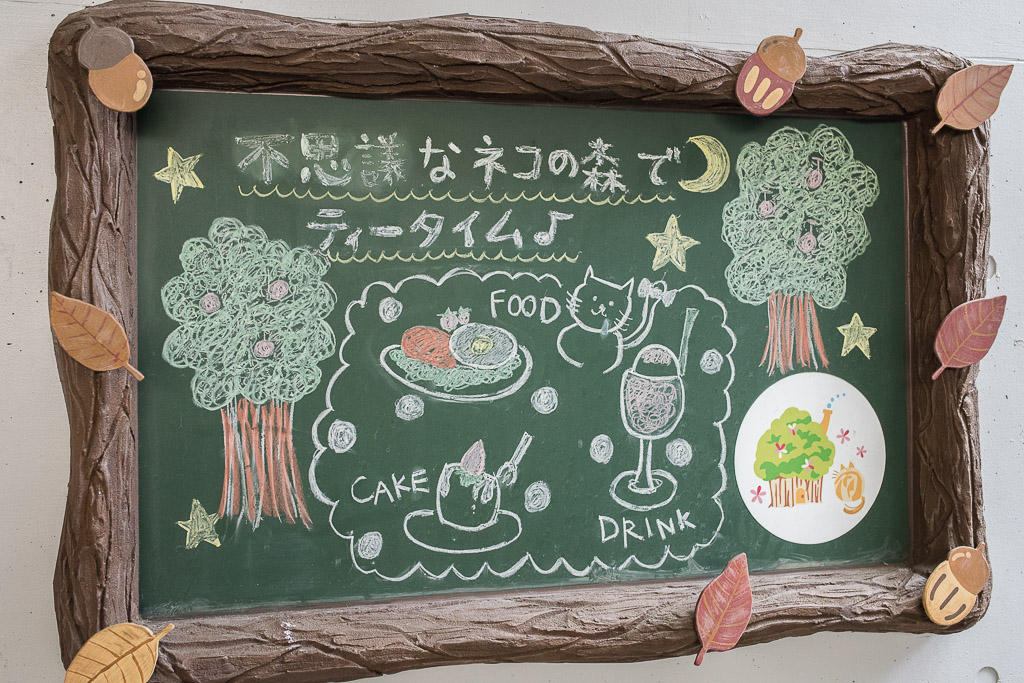 不思議なネコの森で
ティータイム♪
FOOD
CAKE
DRINK